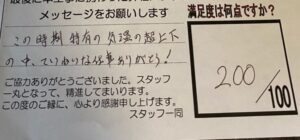 メッセージをお願いします
この時期 特有の気温の超上下
の中、ていねいな仕事ありがとう!
ご協力ありがとうございました。スタッフ
一丸となって、精進してまいります。
この度のご縁に、心より感謝申し上げます。
スタッフ一同
満足度は何点ですか?
200
/100